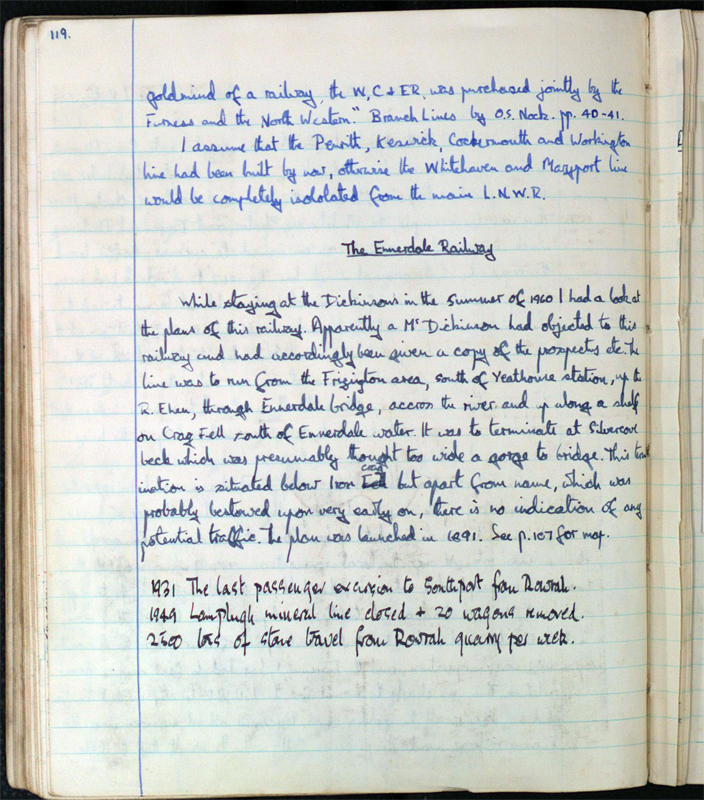 119.
goldmind of a railway, the W, C & ER. was purchased jointly by the
Furness and the North Western." Branch Lines by O.S. Nock. pp. 40-41.
I assume that the Penritt, Keswick, Cockermouth and Workington
line had been built by now, otherwise the Whitehaven and Maryport line
would be completely isololated from the main L.N.W.R.
The Ennerdale Railway
While staying at the Dickinsons in the summer of 1960 I had a look at
the plans of this railway. Apparently a Mr Dickinson had objected to this
railway and had accordingly been given a copy of the prospects etc. The
line was to run from the Frizington area, south of Yeathouse station, up the
R. Ehen, through Ennerdale bridge, accros the river and up along a shelf
on Crag Fell south of Ennerdale water. It was to terminate at Silvercove
beck which was presumably thought too wide a gorge to bridge. This term
ination is situated below Iron Crag but apart from name, which was
probably bestowed upon very early on, there is no indication of any
potential traffic. The plan was launched in 1891. See p.107 for map.
1931 The last passenger excursion to Southport from Rowrah.
1949 Lamplugh mineral line closed + 20 wagons removed.
2500 tons of stone travel from Rowrah quarry per week.